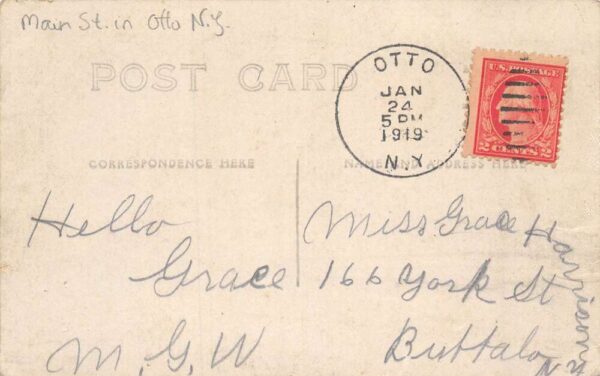 Main St. in Otto N.Y.
POST CARD
OTTO
JAN
24
5 PM
1919
N.Y.
U.S. POSTAGE
2 CENTS 2
CORRESPONDENCE HERE
NAME AND ADDRESS HERE
Hello
Grace
M. G. W
Miss Grace
166 York St
Buffalo
N.Y